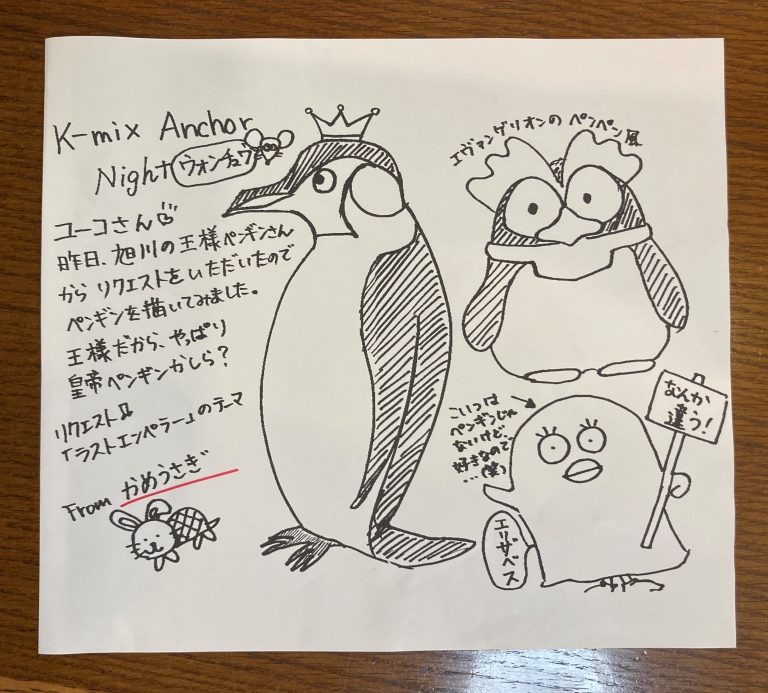 K-mix Anchor
Night ウォンチュウ
ユーコさん
昨日、旭川の王様ペンギンさん
から リクエストをいただいたので
ペンギンを描いてみました。
王様だから、やっぱり
皇帝ペンギンかしら?
リクエスト
「ラストエンペラー」のテーマ
From かめうさぎ
エヴァンゲリオンの ペンペン風
こいつは
ペンギンじゃ
ないけど、
好きなので
…(笑)
なんか
違う!
エリザベス